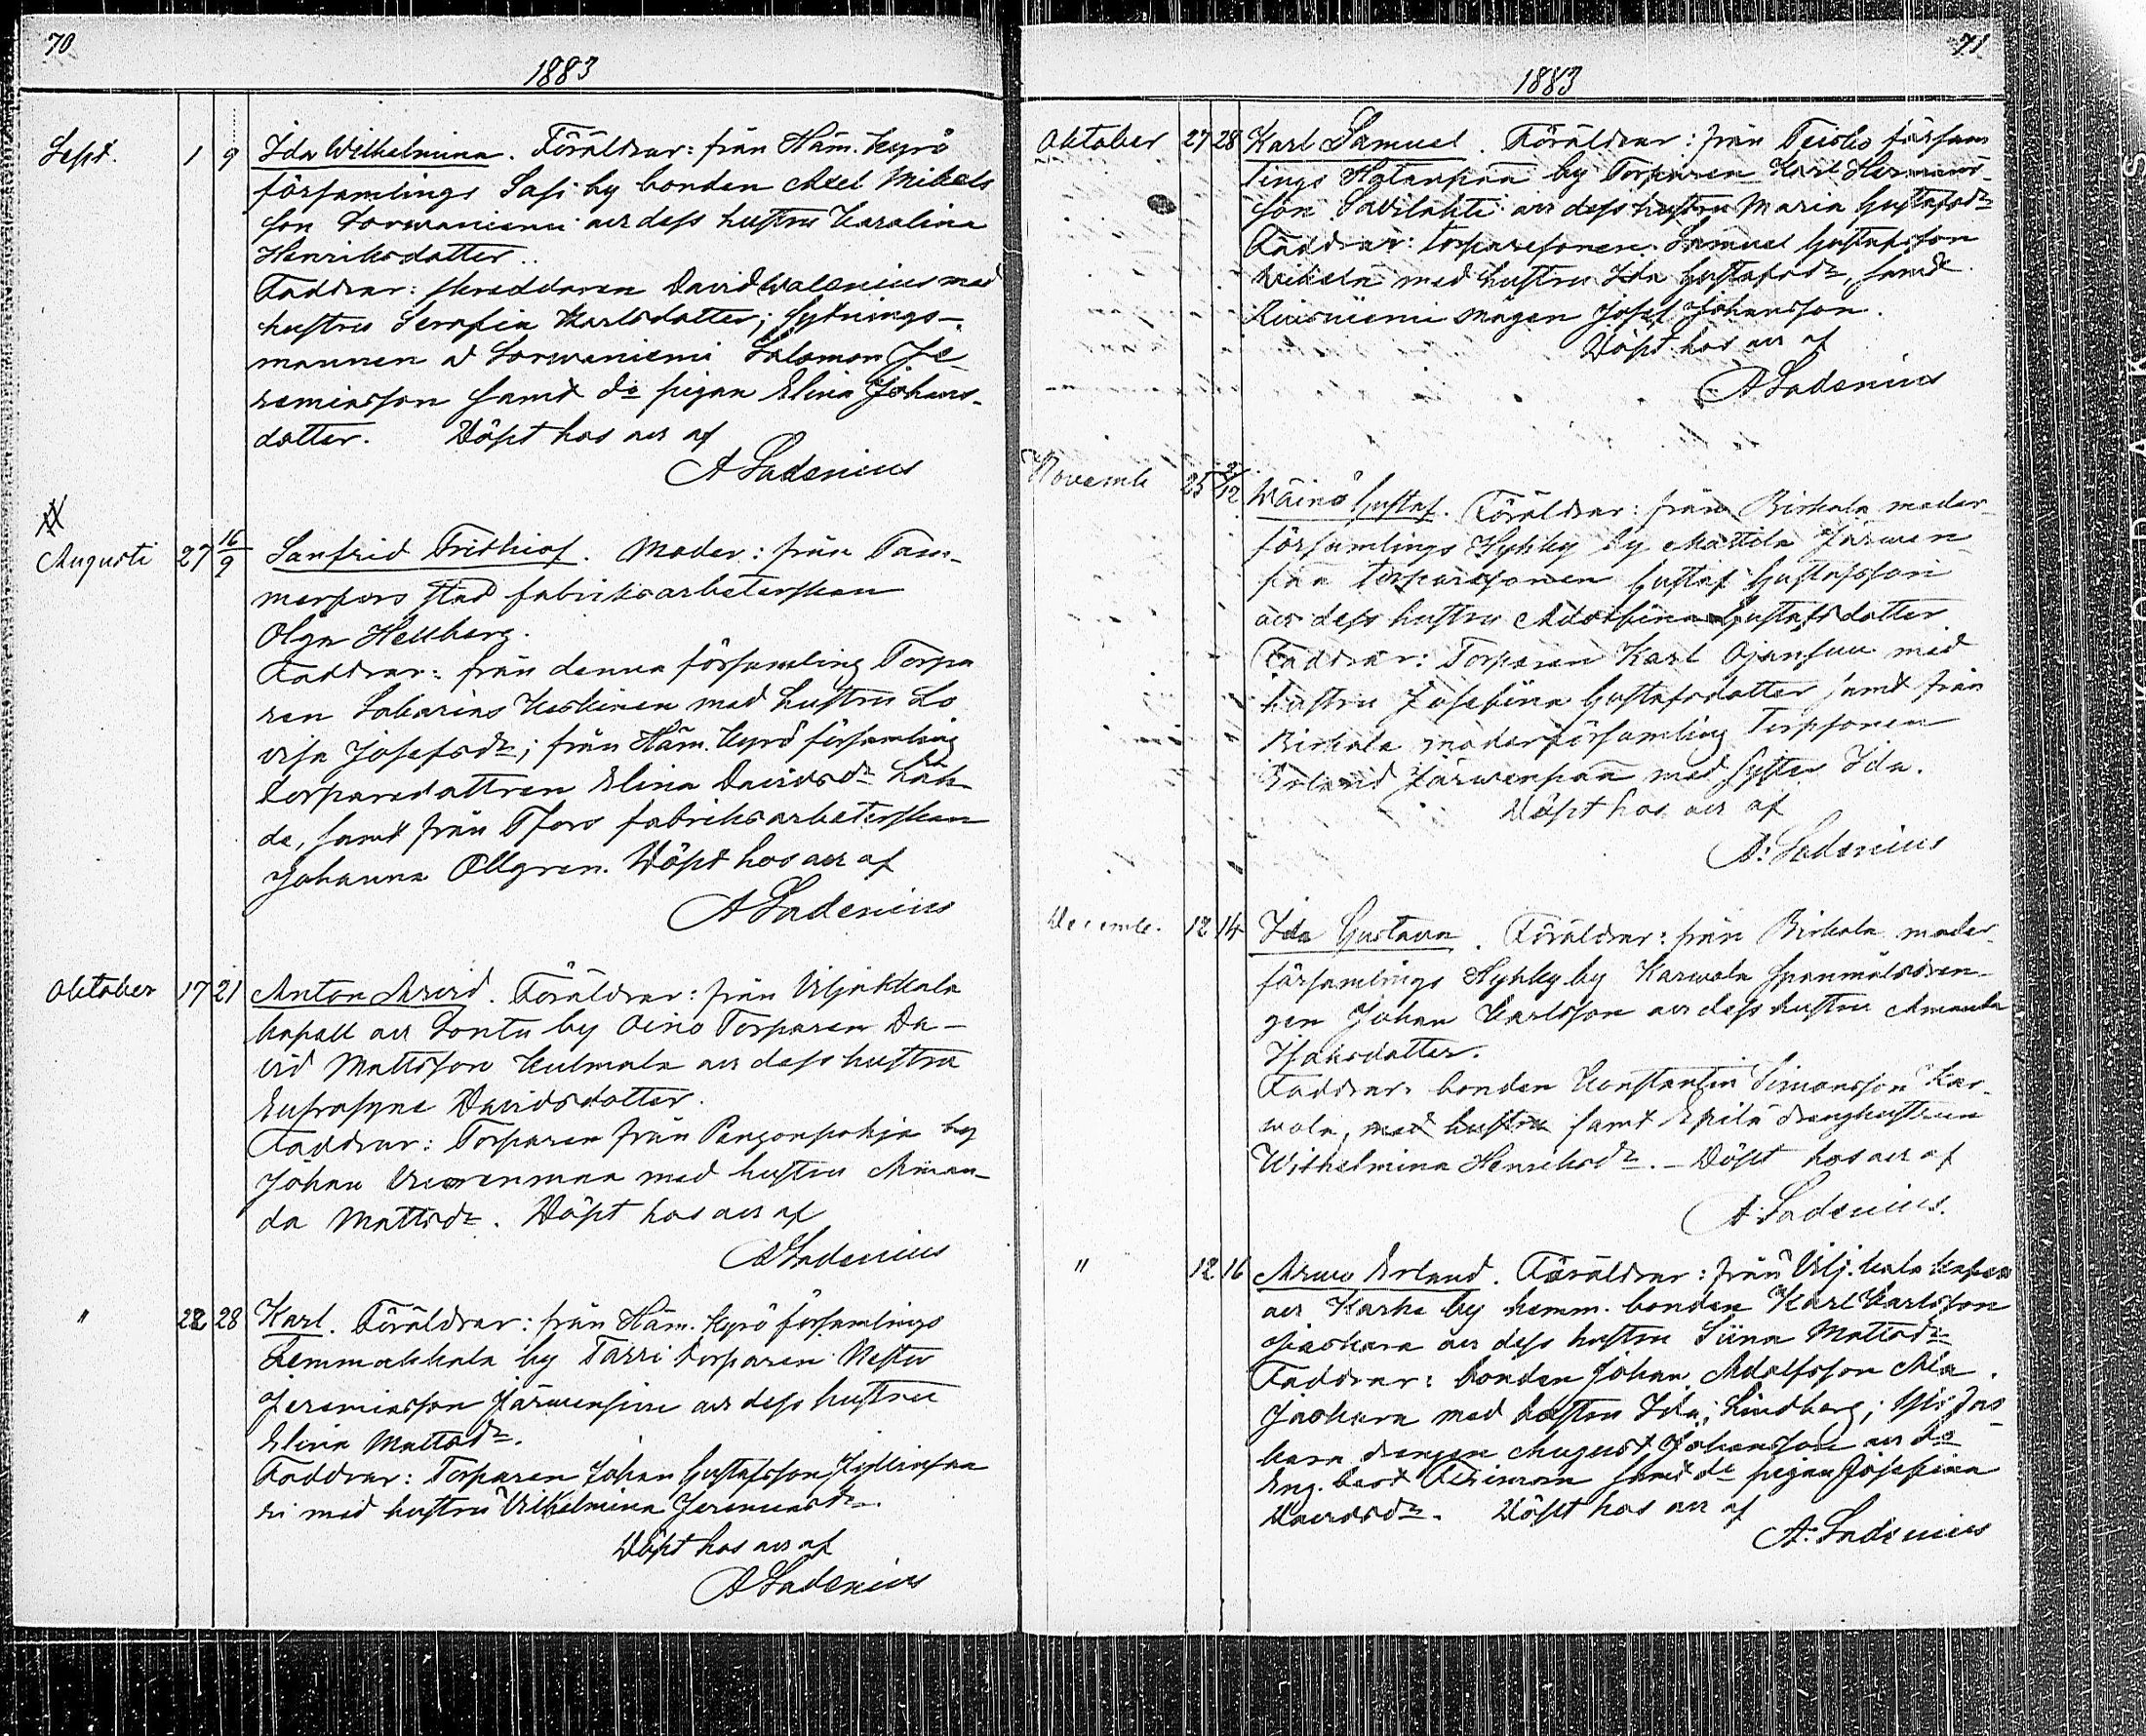 70
1883
Sept. 1 9 Ida Wilhelmina. Föräldrar: från Häm. Kyrö
församlings Sasi by bonden Axel Mikels
son Sorwaniemi och dess hustru Karolina
Henriksdotter.
Faddrar: skreddaren David Walenius med
hustru Serafia Karlsdotter; sytnings-
mannen a Sorwaniemi Salomon Je
remiasson samt do pigan Elina Johans-
dotter. Döpt hos oss af
A Ladenius
Augusti 27 16/9 Sanfrid Fridhiof. Moder: från Tam-
merfors stad fabriksarbeterskan
Olga Hellberg.
Faddrar: från denna församling Torpa
ren Sakarias Keskinen med hustru Lo
visa Josefsdr; från Häm. Kyrö församling
torparedottren Elina Davidsdr Läh
de, samt från Tfors fabriksarbeterskan
Johanna Ollgren. Döpt hos oss af
A Ladenius
Oktober 17 21 Anton Arvid. Föräldrar: från Viljakkala
kapell och Sontu by Oino Torparen Da-
vid Mattsson Kulmala och dess hustru
Eufrosyne Davidsdotter.
Faddrar: Torparen från Pengonpohja by
Johan Vuorenmaa med hustru Aman-
da Mattsdr. Döpt hos oss af
A Ladenius
" 22 28 Karl. Föräldrar: från Häm. Kyrö församlings
Lemmakkala by Tarri torparen Nestor
Jeremiasson Järwensivu och dess hustru
Elina Mattsdr.
Faddrar: Torparen Johan Gustafsson
ri med hustru Vilhelmina Jeremiasdr.
Döpt hos oss af
A Ladenius
71
1883
Oktober 27 28 Karl Samuel. Föräldrar: från Teisko försam
lings Hatanpää by Torparen Karl Hermans-
son Savilahti och dess hustru Maria Gustafsdr
Faddrar: torparesonen Samuel Gustafsson
med hustru Ida Gustafsdr, samt
Ruisniemi mågen Josef Johansson.
Döpt hos oss af
A Ladenius
Novemb 25 2/12 Wäinö Gustaf. Föräldrar: från Birkala moder
församlings Hyhky by Mattila Järwen
pää torparesonen Gustaf Gustafsson
och dess hustru Adolfina Gustafsdotter
Faddrar: Torparen Karl Ojansuu med
hustru Josefina Gustafsdotter samt från
Birkala moderförsamling Torpsonen
Erland Järwenpää med syster Ida.
Döpt hos oss af
A. Ladenius
Decemb. 12 14 Ida Gustava. Föräldrar: från Birkala moder-
församlings Hyhky by Karwola spanmålsdren-
gen Johan Karlsson och dess hustru Amanda
Isaksdotter.
Faddrar: bonden Konstantin Simonsson Kar-
wola, med hustru samt Epilä drenghustrun
Wilhelmina Henriksdr. – Döpt hos oss af
A. Ladenius.
" 12 16 Arwo Erland. Föräldrar: från Vilj.kala kapell
och Karhe by hemm. bonden Karl Karlsson
Jaskara och dess hustru Siina Mattsdr
Faddrar: bonden Johan Adolfsson Ala
Jaskara med hustru Ida; Lindberg; Ylis Jas
kara drengen August Johansson och do
samt do pigan Josefina
Davidsdr. Döpt hos oss af
A. Ladenius